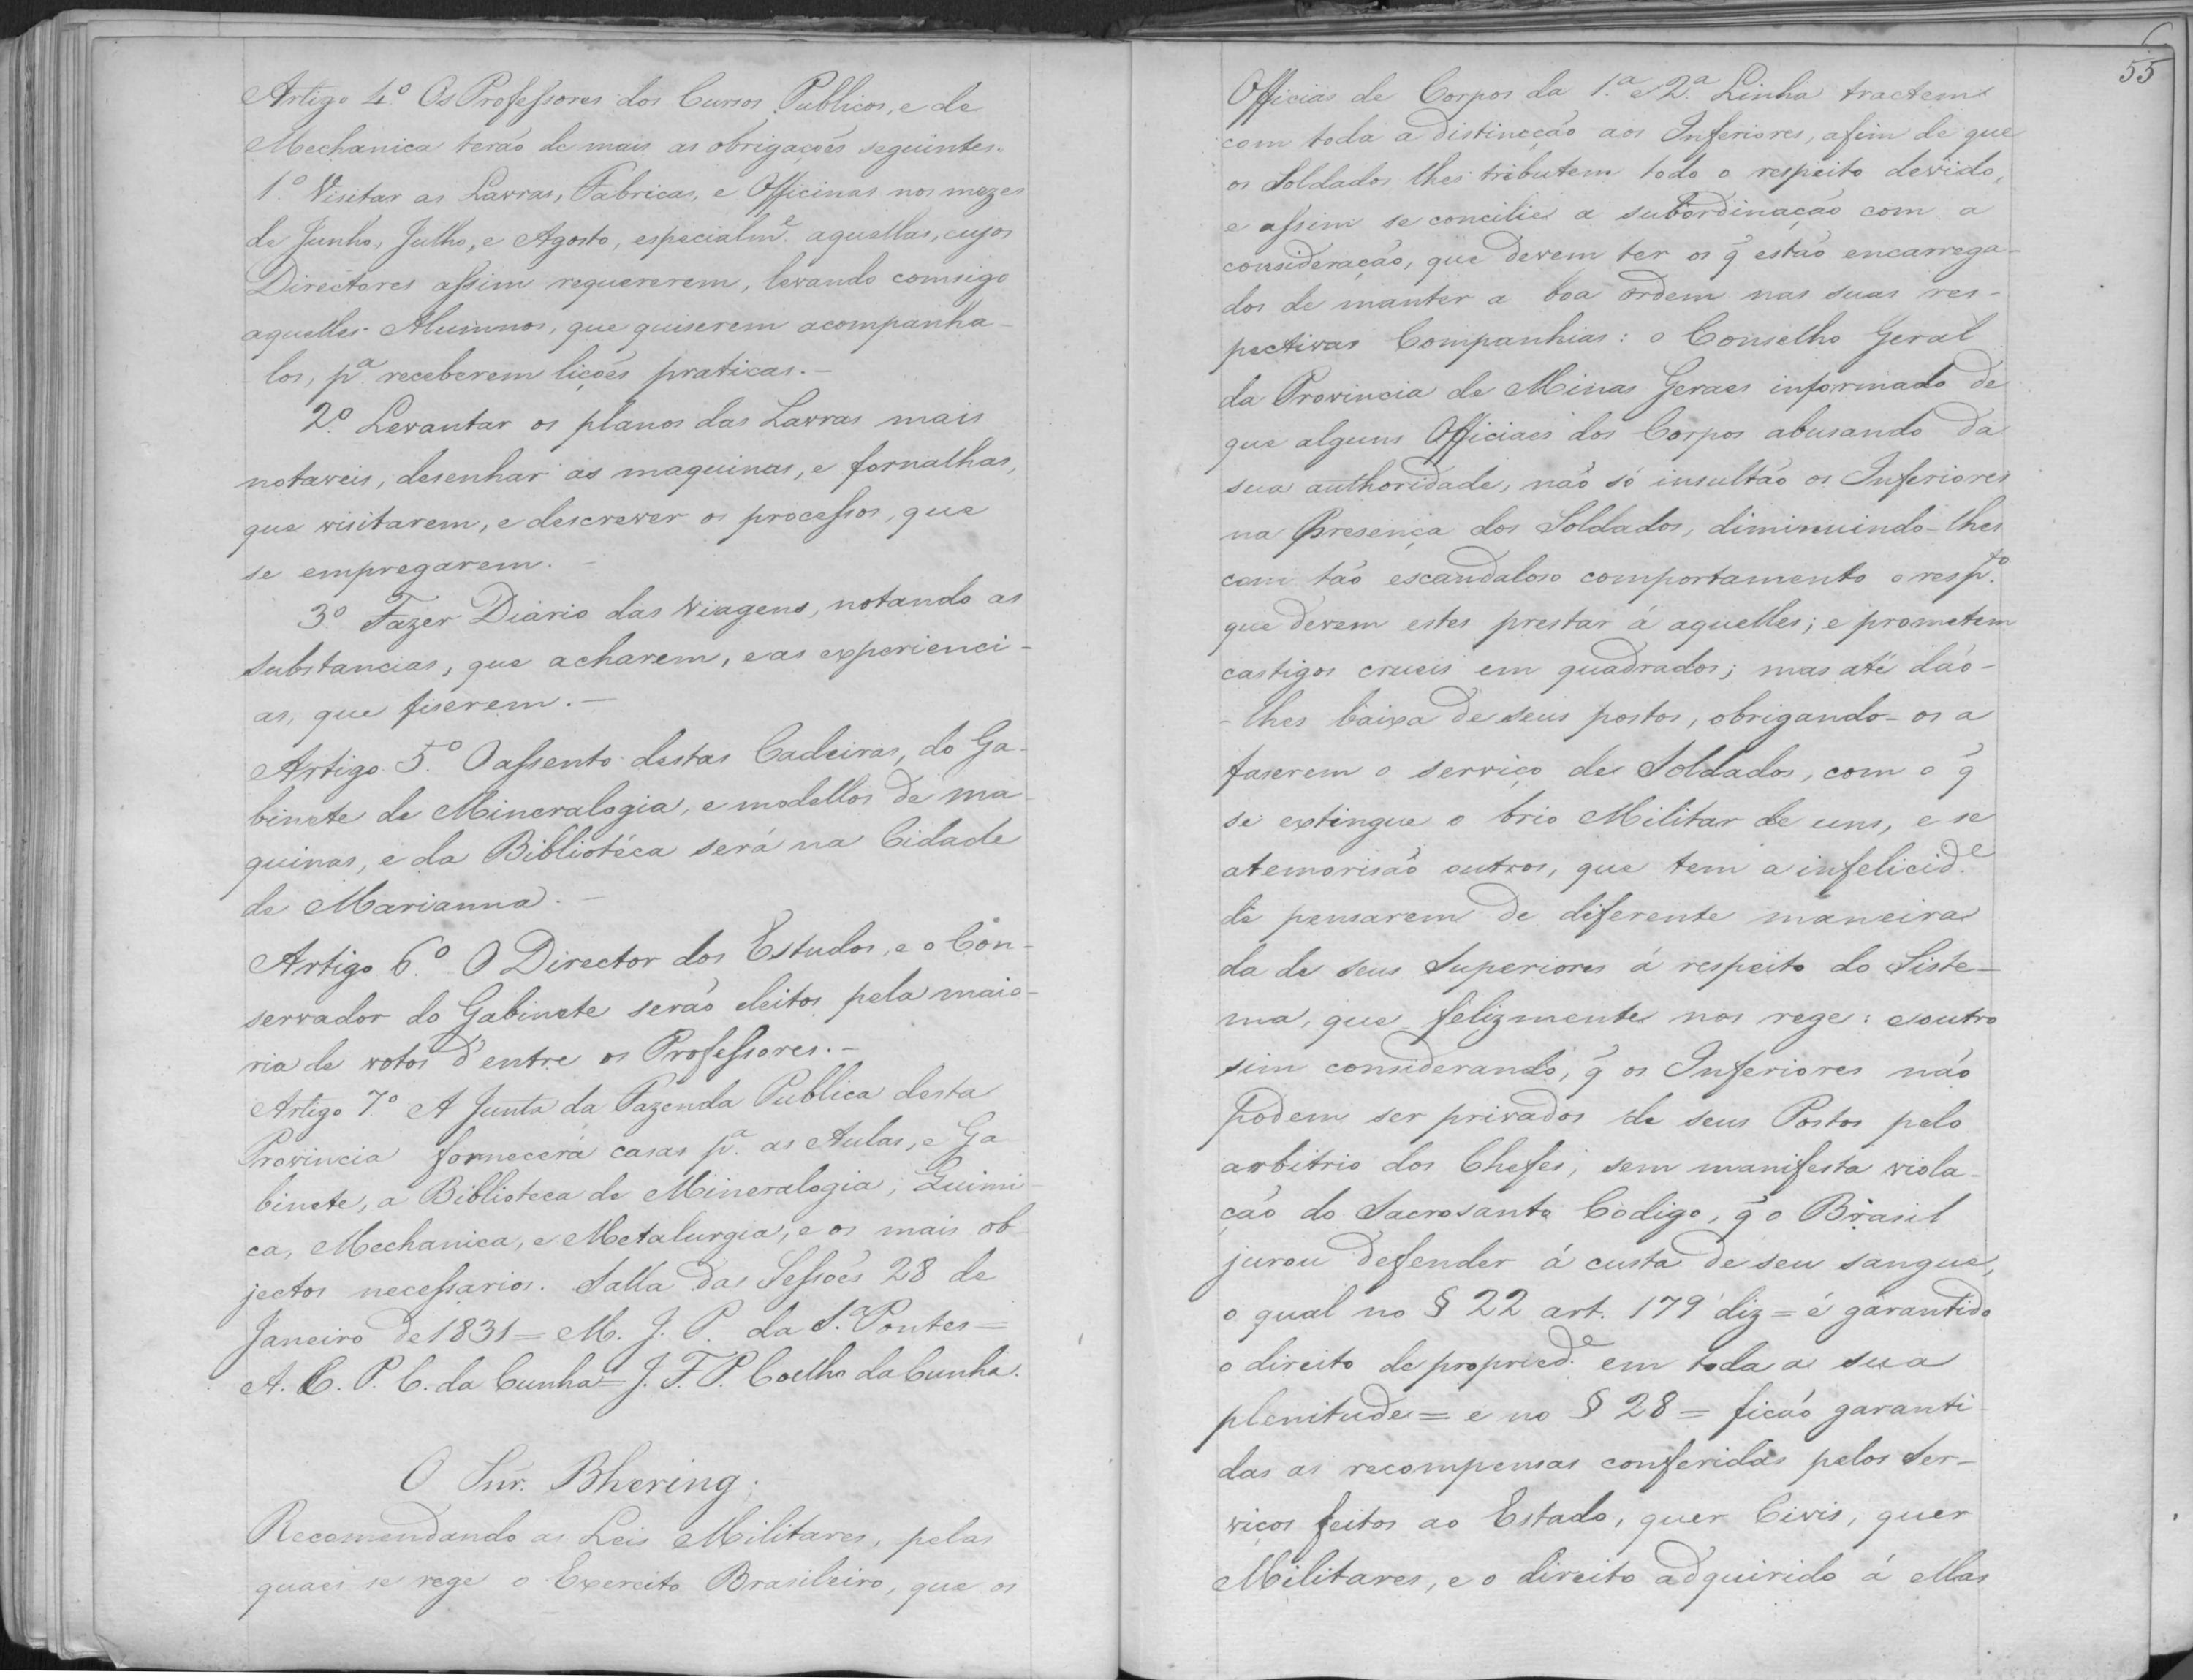 Artigo 4.º Os Professores dos Cursos Publicos, e de
Mechanica terão de mais as obrigações seguintes.
1.º Visitar as Lavras, Fabricas, e Officinas nos mezes
de Junho, Julho, e Agosto, especialm.e aquellas, cujos
Directores assim requererem, levando comsigo
aquelles Alumnos, que quiserem acompanha-
los, p.a receberem lições praticas.-
2.º Levantar os planos das Lavras mais
notaveis, desenhar as maquinas, e fornalhas,
que visitarem, e descrever os processos, que
se empregarem.-
3.º Fazer Diario das Viagens, notando as
substancias, que acharem, e as experienci-
as, que fiserem.-
Artigo 5.º O assento destas Cadeiras, do Ga-
binete de Mineralogia, e modellos de ma-
quinas, e da Bibliotéca será na Cidade
de Marianna.-
Artigo 6.º O Director dos Estudos, e o Con-
servador do Gabinete serão eleitos pela maio-
ria de votos d'entre os Professores.-
Artigo 7.º A Junta da Fazenda Publica desta
Provincia fornecerá casas p.a as Aulas, e Ga
binete, a Biblioteca de Mineralogia, Quimi-
ca, Mechanica, e Metalurgia, e os mais ob
jectos necessarios. Salla das Sessões 28 de
Janeiro de 1831 = M. J. P. da S.a Pontes =
A. C. P. C. da Cunha = J. F. P. Coelho da Cunha.
O Snr. Bhering;
Recomendando as Leis Militares, pelas
quaes se rege o Exercito Brasileiro, que os
55
Officias de Corpos da 1.ª e 2.ª Linha tractem
com toda a distincção aos Inferiores, afim de que
os Soldados lhes tributem todo o respeito devido,
e assim se concilie a subordinação com a
consideração, que devem ter os q̃ estão encarrega-
dos de manter a boa ordem nas suas res-
pectivas Companhias: o Conselho Geral
da Provincia de Minas Geraes informado de
que alguns Officiaes dos Corpos abusando da
sua authoridade, não só insultão os Inferiores
na Presença dos Soldados, diminuindo-lhes
com tão escandaloso comportamento o resp.to
que devem estes prestar á aquelles; e prometem
castigos crueis em quadrados; mas até dão-
-lhes baixa de seus postos, obrigando-os a
faserem o serviço de Soldados, com o q̃
se extingue o brio Militar de uns, e se
atemorisão outros, que tem a infelicid.e
de pensarem de diferente maneira
da de seus Superiores á respeito do Siste-
ma, que felizmente nos rege: e outro
sim considerando, q̃ os Inferiores não
podem ser privados de seus Postos pelo
arbitrio dos Chefes, sem manifesta viola-
ção do Sacrosanto Codigo, q̃ o Brasil
jurou defender á custa de seu sangue,
o qual no § 22 art. 179 diz = é garantido
o direito de propried.e em toda a sua
plenitude = e no § 28 = ficão garanti-
das as recompensas conferidas pelos Ser-
viços feitos ao Estado, quer Civis, quer
Militares, e o direito adquirido á ellas